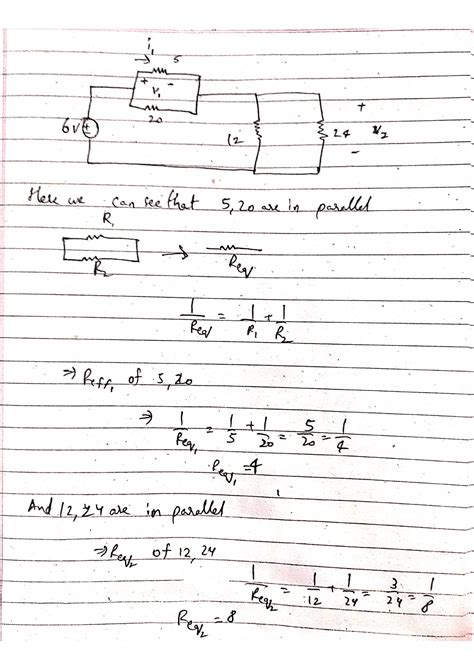 i₁
5
+ V₁ -
20
6V
+
12
24
+
V₂
-
Here we can see that 5, 20 are in parallel
R₁
R₂
→
Req
1/Req = 1/R₁ + 1/R₂
⇒ Reff₁ of 5, 20
⇒ 1/Req₁ = 1/5 + 1/20 = 5/20 = 1/4
Req₁ = 4
And 12, 24 are in parallel
⇒ Req₂ of 12, 24
1/Req₂ = 1/12 + 1/24 = 3/24 = 1/8
Req₂ = 8